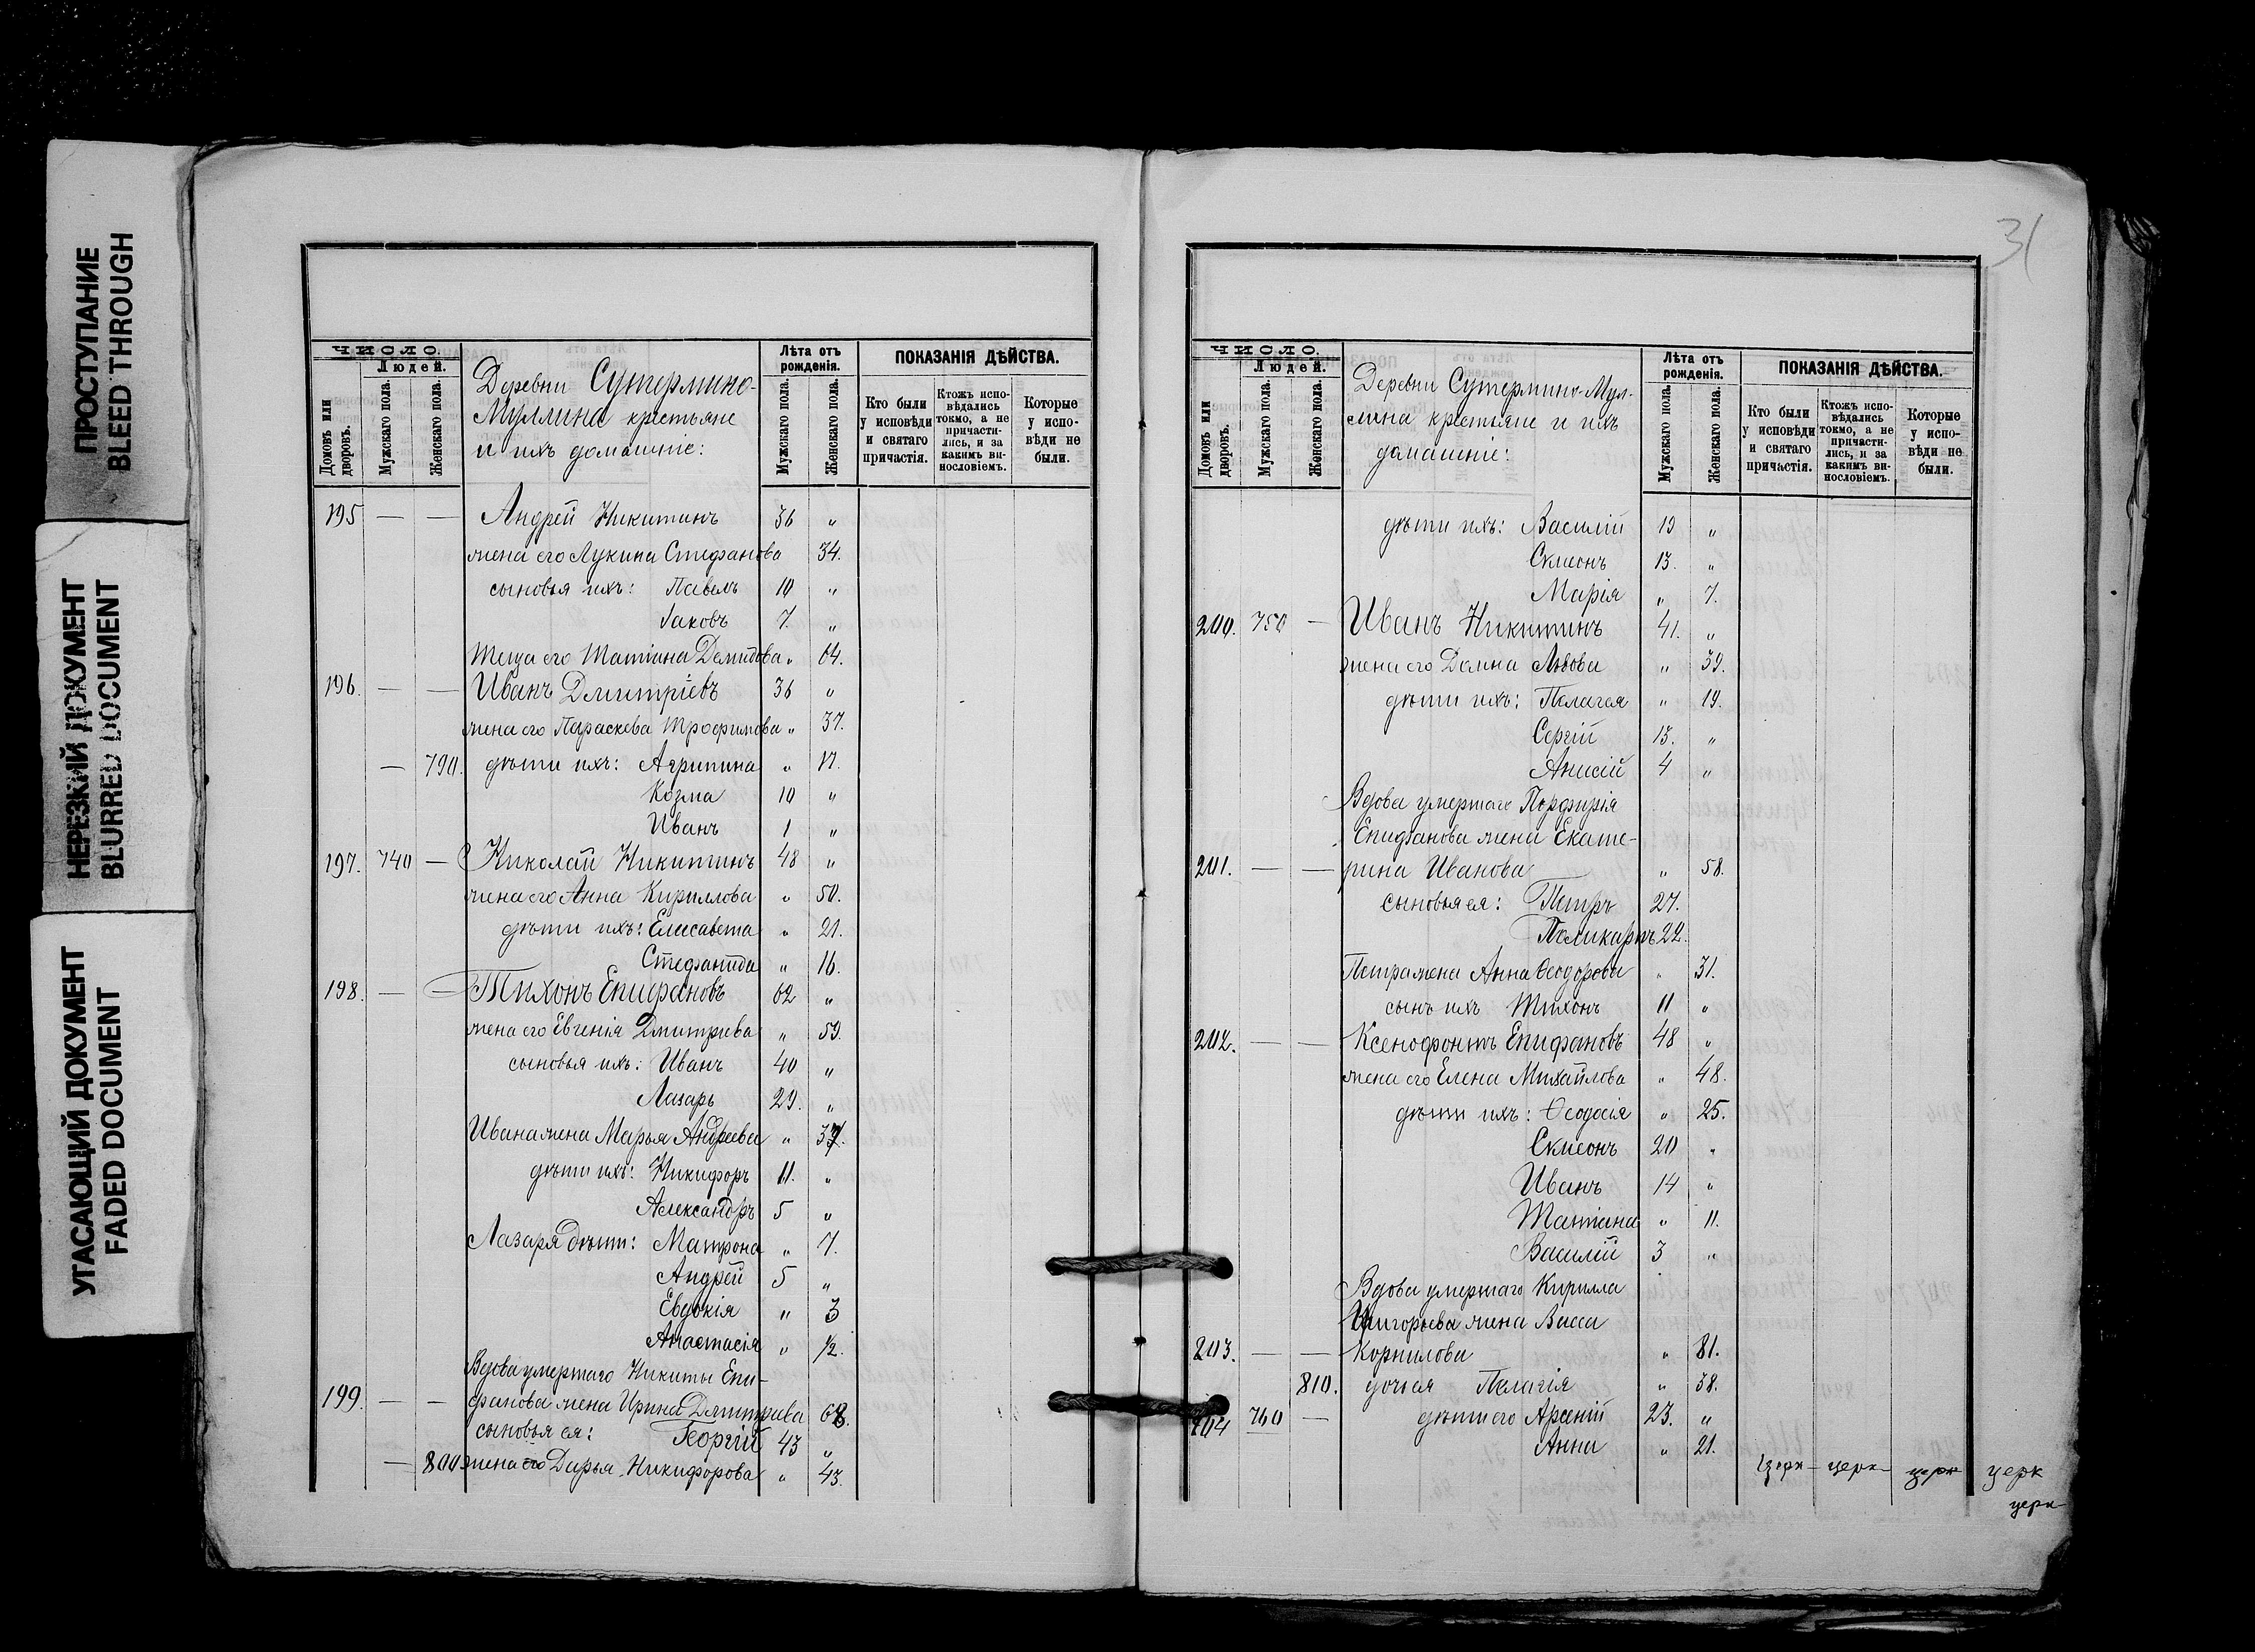 ПРОСТУПАНИЕ
BLEED THROUGH
НЕРЕЗКИЙ ДОКУМЕНТ
BLURRED DOCUMENT
УГАСАЮЩИЙ ДОКУМЕНТ
FADED DOCUMENT
ЧИСЛО.
Людей.
Домовъ или дворовъ.
Мужскаго пола.
Женскаго пола.
Деревни Сутермино-
Муллина крестьяне
и ихъ домашніе:
Лѣта отъ рожденія.
Мужскаго пола.
Женскаго пола.
ПОКАЗАНІЯ ДѢЙСТВА.
Кто были у исповѣди и святаго причастія.
Ктожъ исповѣдались токмо, а не причастились, и за какимъ винословіемъ.
Которые у исповѣди не были.
195 — — Андрей Никитинъ 36 „
жена его Лукина Стефанова 34.
сыновья ихъ: Павелъ 10 „
Іаковъ 7. „
Теща его Татіана Демидова „ 64.
196. — — Иванъ Дмитріевъ 36 „
жена его Параскева Трофимова „ 37.
— 790. дѣти ихъ: Агрипина „ 17.
Козма 10 „
Иванъ 1 „
197. 740 — Николай Никитинъ 48 „
жена его Анна Кириллова „ 50.
дѣти ихъ: Елисавета „ 21.
Стефанида „ 16.
198. — — Тихонъ Епифановъ 62 „
жена его Евгенія Дмитріева „ 59.
сыновья ихъ: Иванъ 40 „
Лазарь 29. „
Ивана жена Марья Андреева „ 37.
дѣти ихъ: Никифоръ 11. „
Александръ 5 „
Лазаря дѣти: Матрона „ 7.
Андрей 5 „
Евдокія „ 3
Анастасія „ 1/2.
Вдова умершаго Никиты Епи-
199. — — фанова жена Ирина Дмитріева 68.
сыновья ея: Георгій 43 „
— 800 жена его Дарья Никифорова „ 43.
31
ЧИСЛО.
Людей.
Домовъ или дворовъ.
Мужскаго пола.
Женскаго пола.
Деревни Сутермино-Мул-
лина крестьяне и ихъ
домашніе:
Лѣта отъ рожденія.
Мужскаго пола.
Женскаго пола.
ПОКАЗАНІЯ ДѢЙСТВА.
Кто были у исповѣди и святаго причастія.
Ктожъ исповѣдались токмо, а не причастились, и за какимъ винословіемъ.
Которые у исповѣди не были.
дѣти ихъ: Василій 19 „
Сѵмеонъ 13. „
Марія „ 7.
200. 750 — Иванъ Никитинъ 41. „
жена его Домна Львова „ 39.
дѣти ихъ: Пелагея „ 19.
Сергій 13. „
Анисій 4 „
Вдова умершаго Порфирія
Епифанова жена Екате-
201. — — рина Иванова „ 58.
сыновья ея: Петръ 27.
Поликарпъ 22.
Петра жена Анна Ѳеодорова „ 31.
сынъ ихъ Тихонъ 11 „
202. — — Ксенофонтъ Епифановъ 48 „
жена его Елена Михайлова „ 48.
дѣти ихъ: Ѳеодосія „ 25.
Сѵмеонъ 20 „
Иванъ 14 „
Татіана „ 11.
Василій 3 „
Вдова умершаго Кирилла
Григорьева жена Васса
203. — — Корнилова „ 81.
810. дочь ея Пелагія „ 38.
204 760 — дѣти его Арсеній 23. „
Анна „ 21.
церк церк церк церк
церк